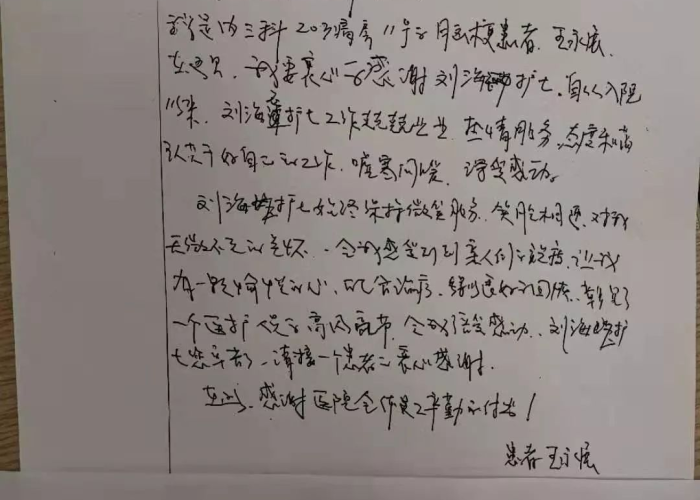 我是内三科203病房11号的脑梗患者王永宏.
在这里、我要衷心的感谢刘海护士.自从入院
以来.刘海护士工作兢兢业业.热情服务、态度和蔼
认真干好自己的工作.嘘寒问暖.深受感动。
刘海护士始终保持微笑服务.笑脸相迎.对我
无微不至的关怀.令我感觉到到亲人们的说疗.让我
有一颗愉悦的心.配合治疗.得到良好的回体.彰显了
一个医护人员的高风亮节.令我倍受感动.刘海护
士您辛苦了、请接一个患者的衷心感谢.
在此、感谢医院全体员工辛勤的付出！
患者王永宏